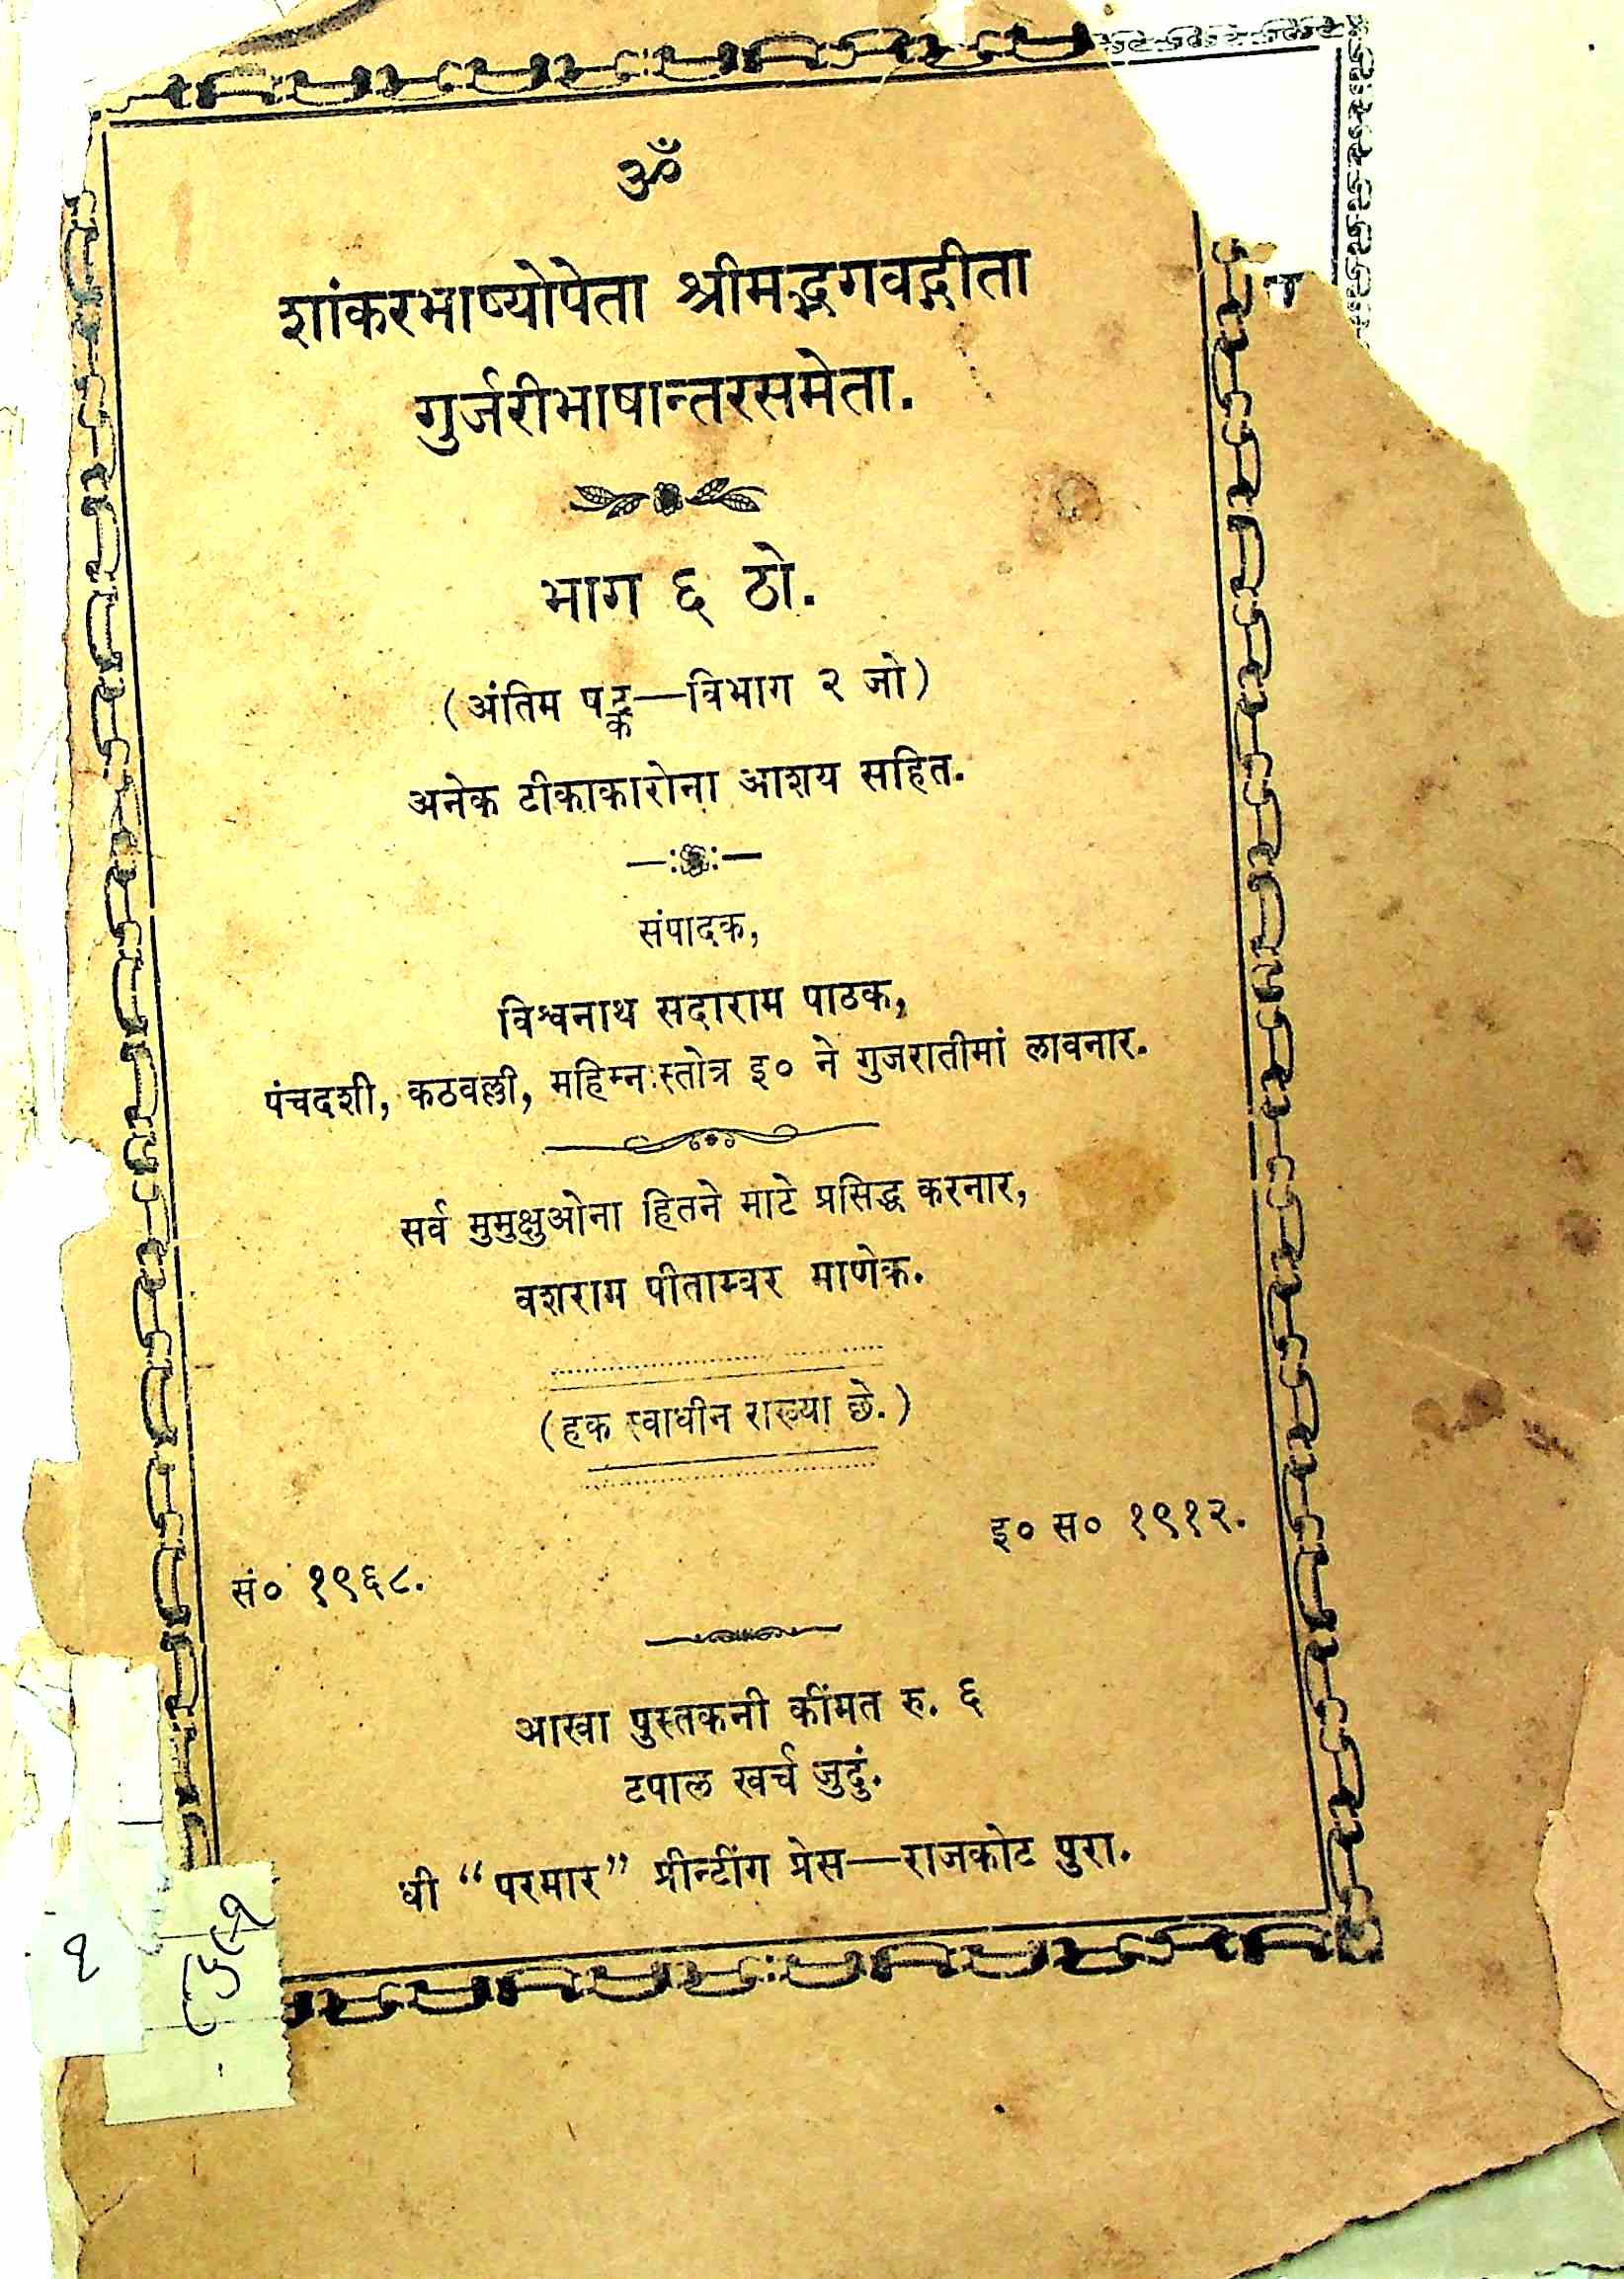 ॐ
शांकरभाष्योपेता श्रीमद्भगवद्गीता
गुर्जरीभाषान्तरसमेता.
भाग ६ ठो.
(अंतिम षट्क—विभाग २ जो)
अनेक टीकाकारोना आशय सहित.
संपादक,
विश्वनाथ सदाराम पाठक,
पंचदशी, कठवल्ली, महिम्नःस्तोत्र इ० ने गुजरातीमां लावनार.
सर्व मुमुक्षुओना हितने माटे प्रसिद्ध करनार,
वशराम पीताम्बर माणेक.
(हक स्वाधीन राख्या छे.)
सं० १९६८.
इ० स० १९१२.
आखा पुस्तकनी कींमत रु. ६
टपाल खर्च जुदुं.
धी “परमार” प्रीन्टींग प्रेस—राजकोट पुरा.